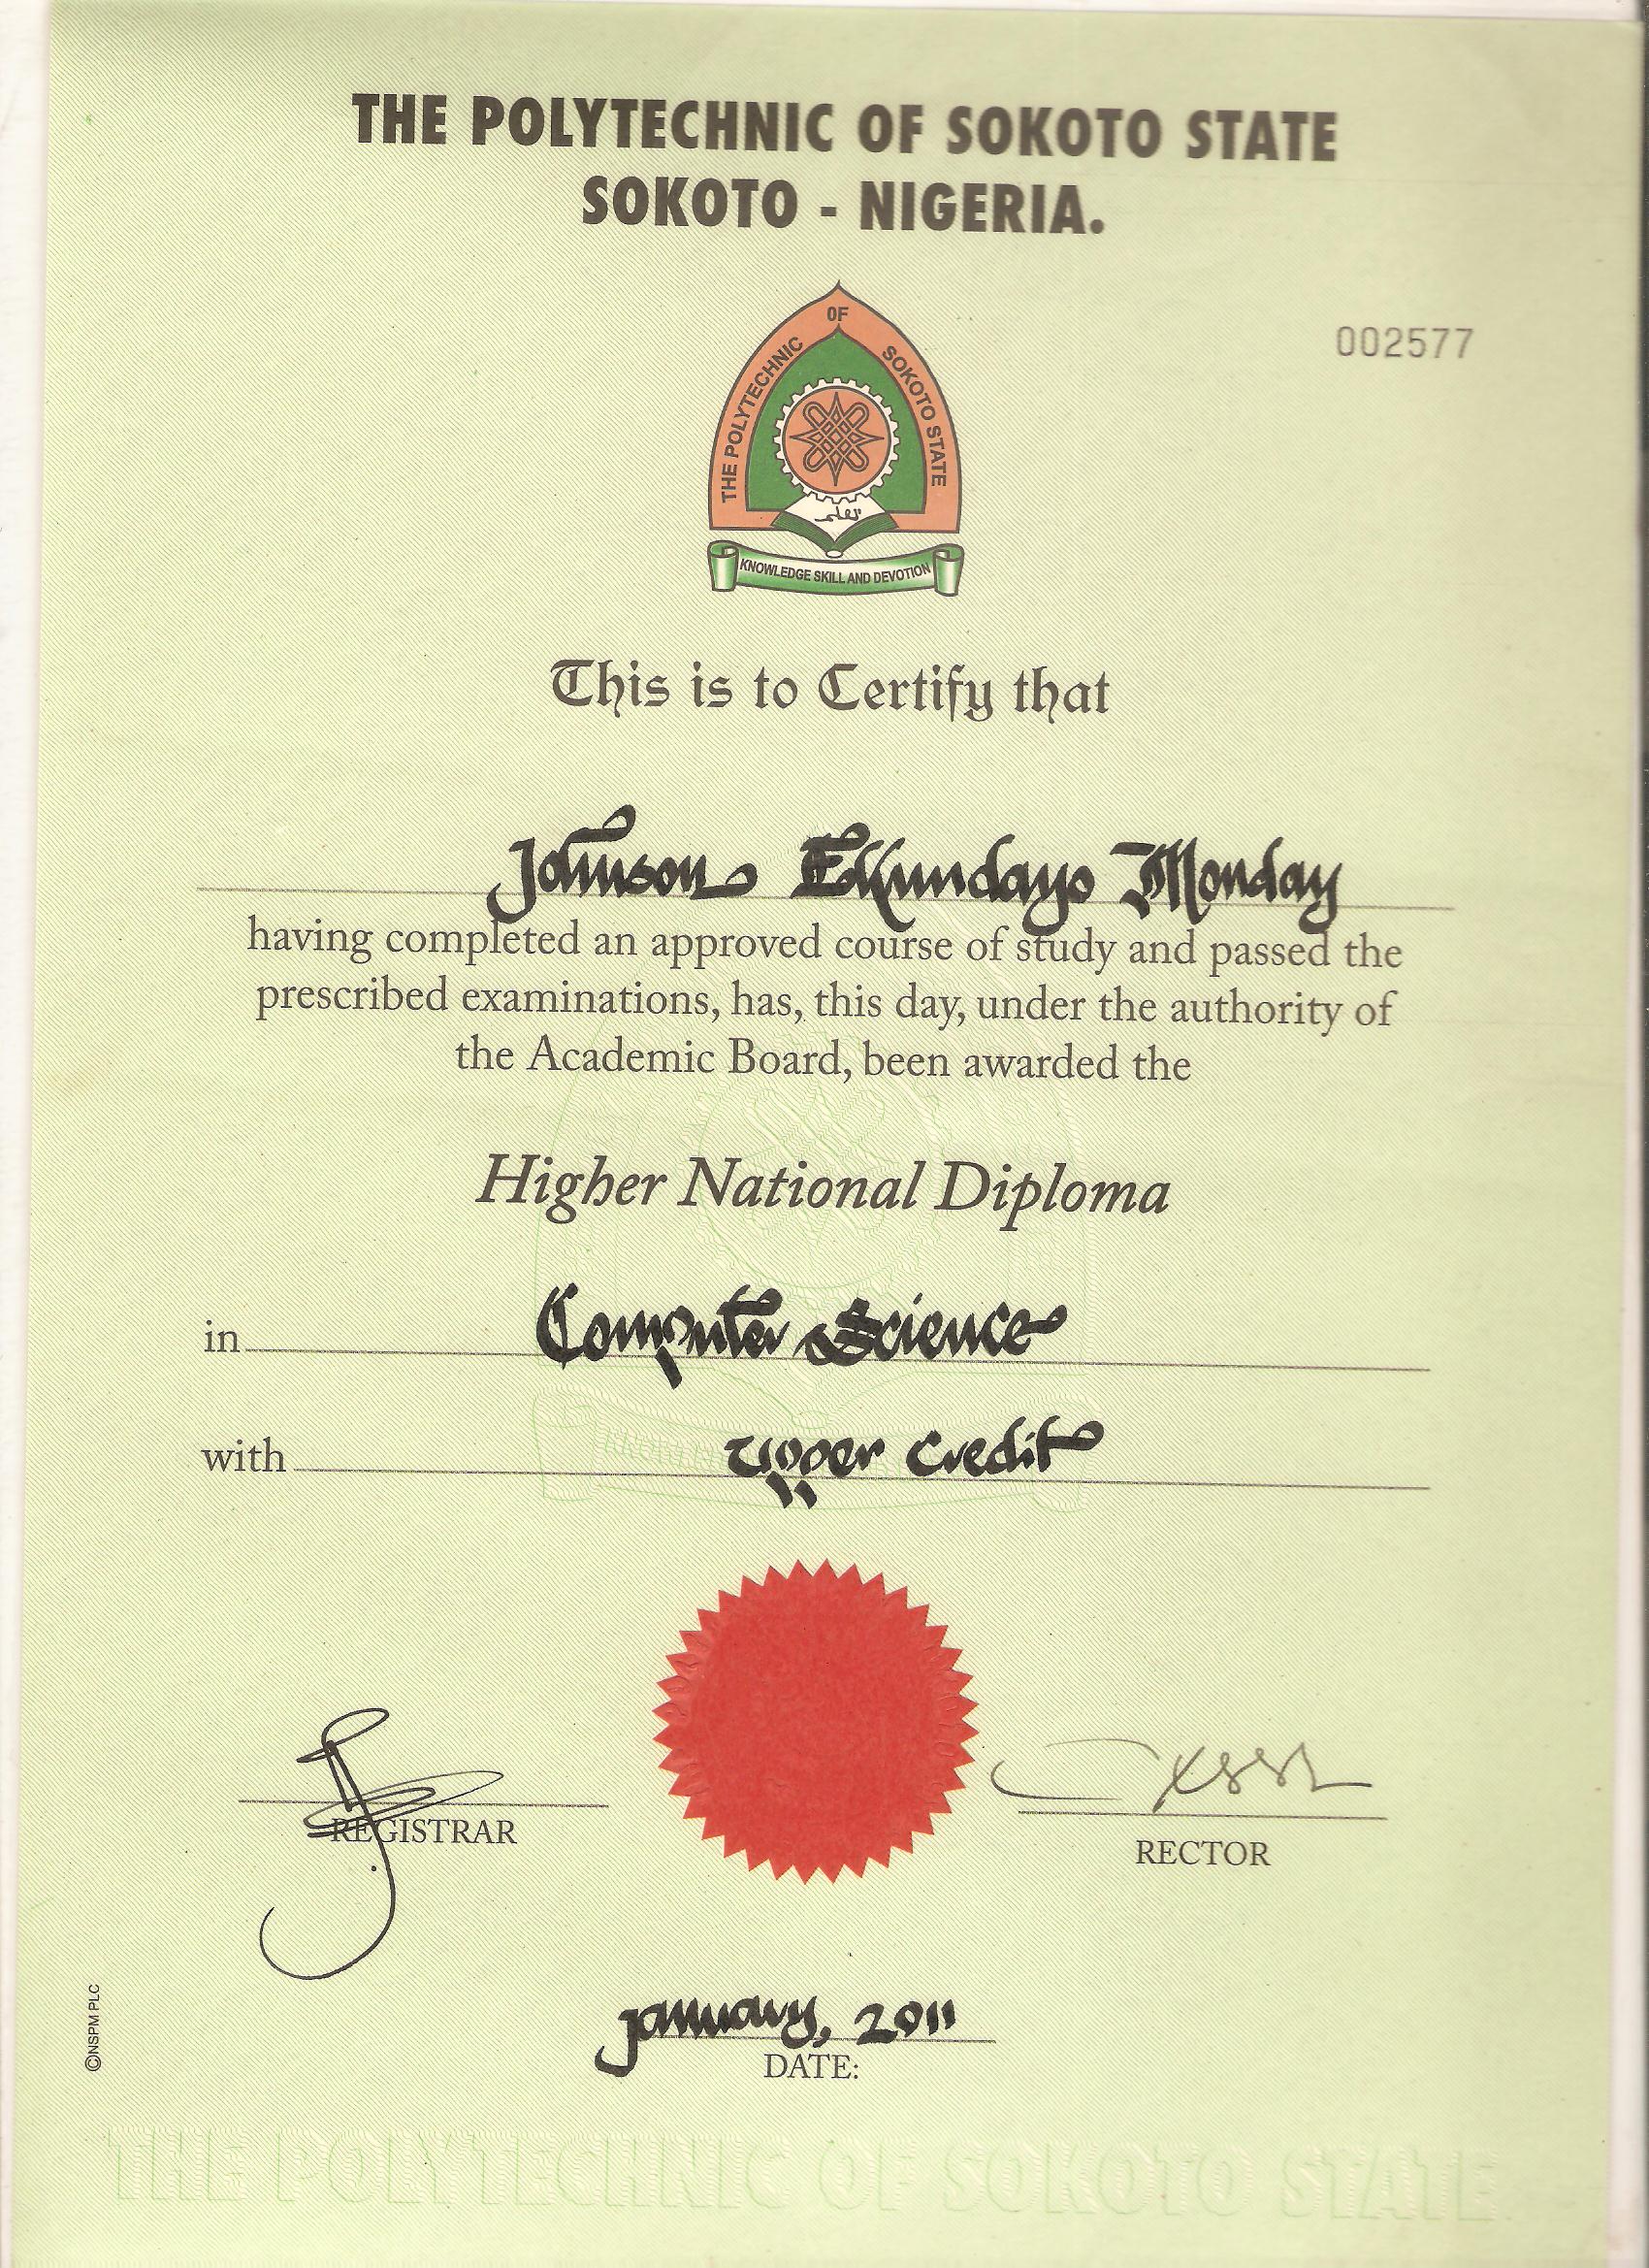 THE POLYTECHNIC OF SOKOTO STATE
SOKOTO - NIGERIA.
002577
THE POLYTECHNIC OF SOKOTO STATE
تعلم
KNOWLEDGE SKILL AND DEVOTION
This is to Certify that
Johnson Ekundayo Monday
having completed an approved course of study and passed the
prescribed examinations, has, this day, under the authority of
the Academic Board, been awarded the
Higher National Diploma
in Computer Science
with Upper Credit
REGISTRAR
RECTOR
January, 2011
DATE:
©NSPM PLC
THE POLYTECHNIC OF SOKOTO STATE